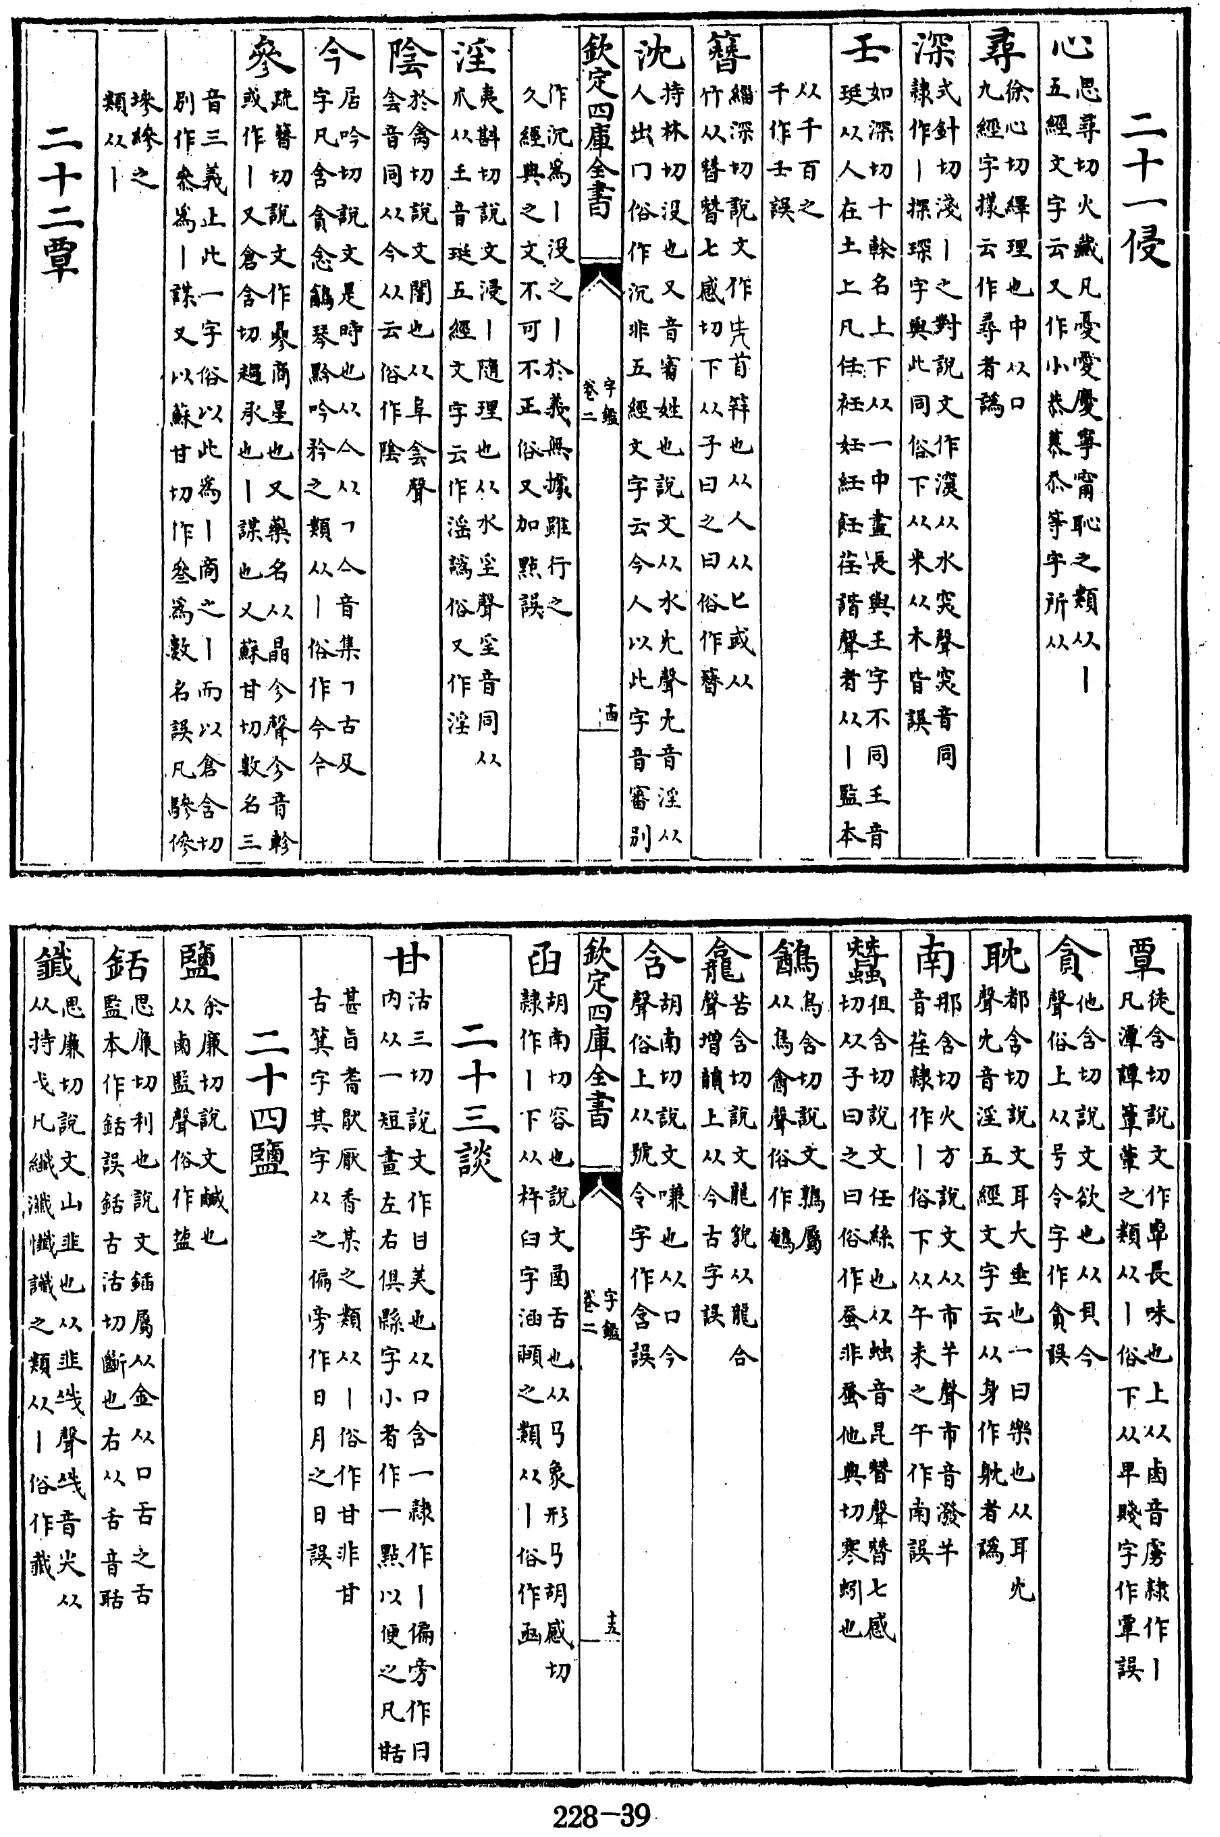 二十一侵
心思尋切火藏凡憂愛慶寧甯恥之類从丨
五經文字云又作小恭慕忝等字所从
尋徐心切繹理也中从口
九經字㨾云作尋者譌
深式針切淺丨之對說文作㴱从水罙聲罙音同
隷作丨探琛字與此同俗下从米从木皆誤
壬如深切十榦名上下从一中畫長與王字不同王音
珽从人在土上凡任衽妊紝飪荏諧聲者从丨監本
从千百之
千作壬誤
簪緇深切說文作兂首笄也从人从匕或从
竹从朁朁七感切下从子曰之曰俗作簮
沈持林切没也又音審姓也說文从水冘聲冘音淫从
人出冂俗作沉非五經文字云今人以此字音審別
欽定四庫全書
字鑑
卷二
十四
作沉爲丨没之丨於義無據雖行之
久經典之文不可不正俗又加點誤
淫夷斟切說文浸丨隨理也从水㸒聲㸒音同从
爪从𡈼音珽五經文字云作滛譌俗又作淫
陰於禽切說文闇也从阜侌聲
侌音同从今从云俗作隂
今居吟切說文是時也从亼从㇇亼音集㇇古及
字凡含貪念䳺琴黔吟矜之類从丨俗作今
參疏簪切說文作曑商星也又藥名从晶㐱聲㐱音軫
或作丨又倉含切趨承也丨謀也又蘇甘切數名三
音三義止此一字俗以此爲丨商之丨而以倉含切
別作叅爲丨謀又以蘇甘切作叁爲數名誤凡驂傪
墋縿之
類从丨
二十二覃
覃徒含切說文作𪉷長味也上从鹵音虜隷作丨
凡潭譚簟蕈之類从丨俗下从早賤字作覃誤
貪他含切說文欲也从貝今
聲俗上从号令字作貪誤
耽都含切說文耳大垂也一曰樂也从耳冘
聲冘音淫五經文字云从身作躭者譌
南那含切火方說文从巿𢆉聲巿音潑𢆉
音荏隷作丨俗下从午未之午作南誤
蠶徂含切說文任絲也从䖵音昆朁聲朁七感
切从子曰之曰俗作蚕非蚕他典切寒蚓也
䳺烏含切說文鶉屬
从鳥酓聲俗作鵪
龕苦含切說文龍皃从龍合
聲增韻上从今古字誤
含胡南切說文嗛也从口今
聲俗上从號令字作含誤
欽定四庫全書
字鑑
卷二
十五
函胡南切容也說文圅舌也从㔾象形㔾胡感切
隷作丨下从杵臼字涵顄之類从丨俗作凾
二十三談
甘沽三切說文作甘美也从口含一隷作丨偏旁作曰
内从一短畫左右俱縣字小者作一點以便之凡甛
甚旨耆猒厭香某之類从丨俗作甘非甘
古箕字其字从之偏旁作日月之日誤
二十四鹽
鹽余廉切說文鹹也
从鹵監聲俗作塩
銛思廉切利也說文鍤屬从金从口舌之舌
監本作銛誤銛古活切斷也右从𠯑音聒
韱思廉切說文山韭也从韭㦰聲㦰音尖从
从持戈凡纖瀸懺讖之類从丨俗作韯
228-39